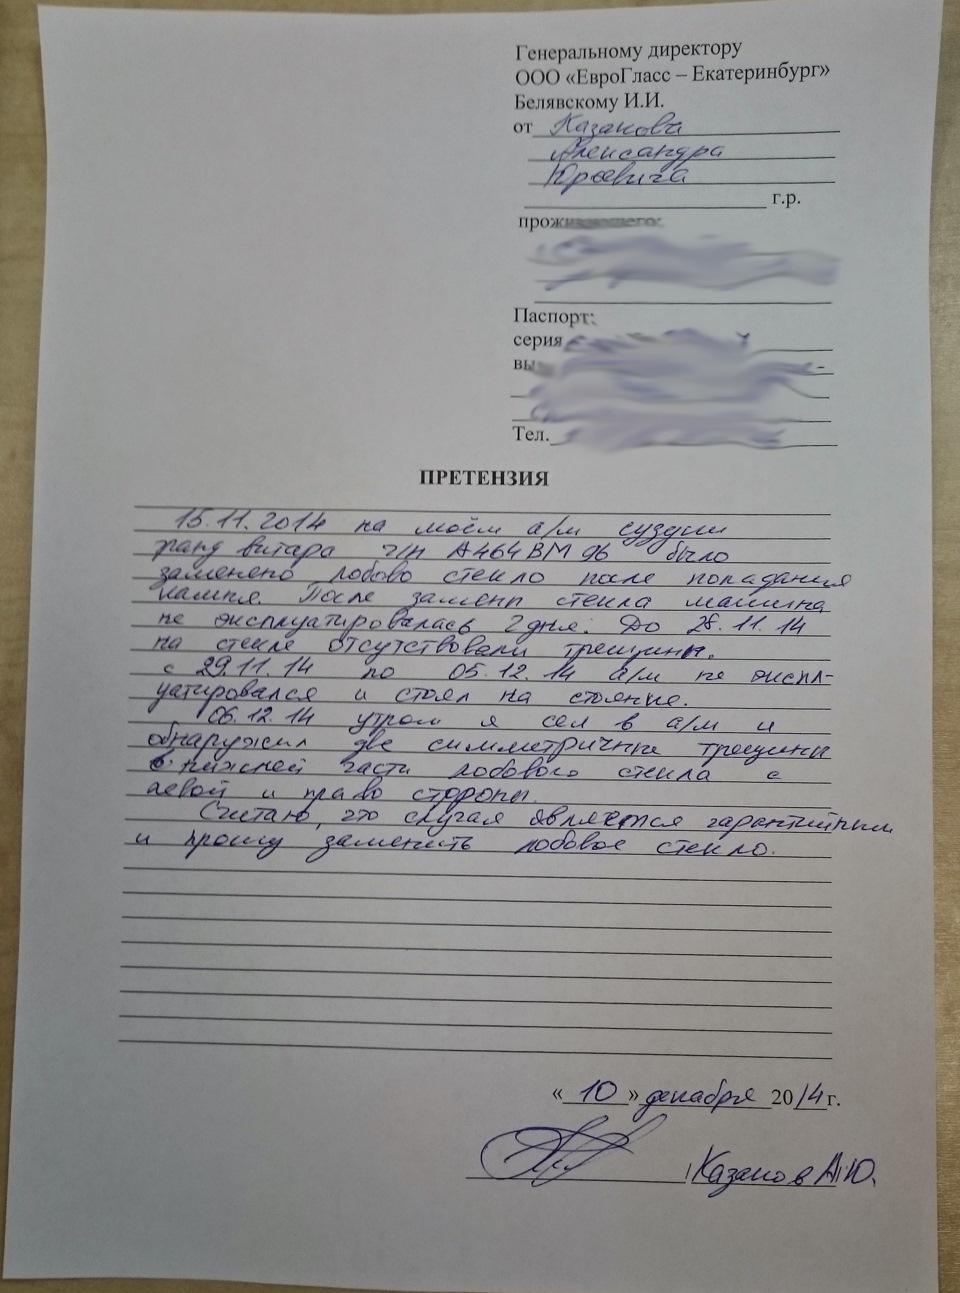 Генеральному директору
ООО «ЕвроГласс – Екатеринбург»
Белявскому И.И.
от Казакова
Александра
Юрьевича
г.р.
проживающего:
Паспорт:
серия
вы
Тел.
ПРЕТЕНЗИЯ
15.11.2014 на моём а/м сузуки
гранд витара г/н А464ВМ 96 было
заменено лобово стекло после попадания
камня. После замены стекла машина
не эксплуатировалась 2 дня. До 28.11.14
на стекле отсутствовали трещины.
с 29.11.14 по 05.12.14 а/м не экспл-
уатировался и стоял на стоянке.
06.12.14 утром я сел в а/м и
обнаружил две симметричные трещины
в нижней части лобового стекла с
левой и право стороны.
Считаю, что случая является гарантийным
и прошу заменить лобовое стекло.
«10» декабря 2014 г.
/Казаков А.Ю.